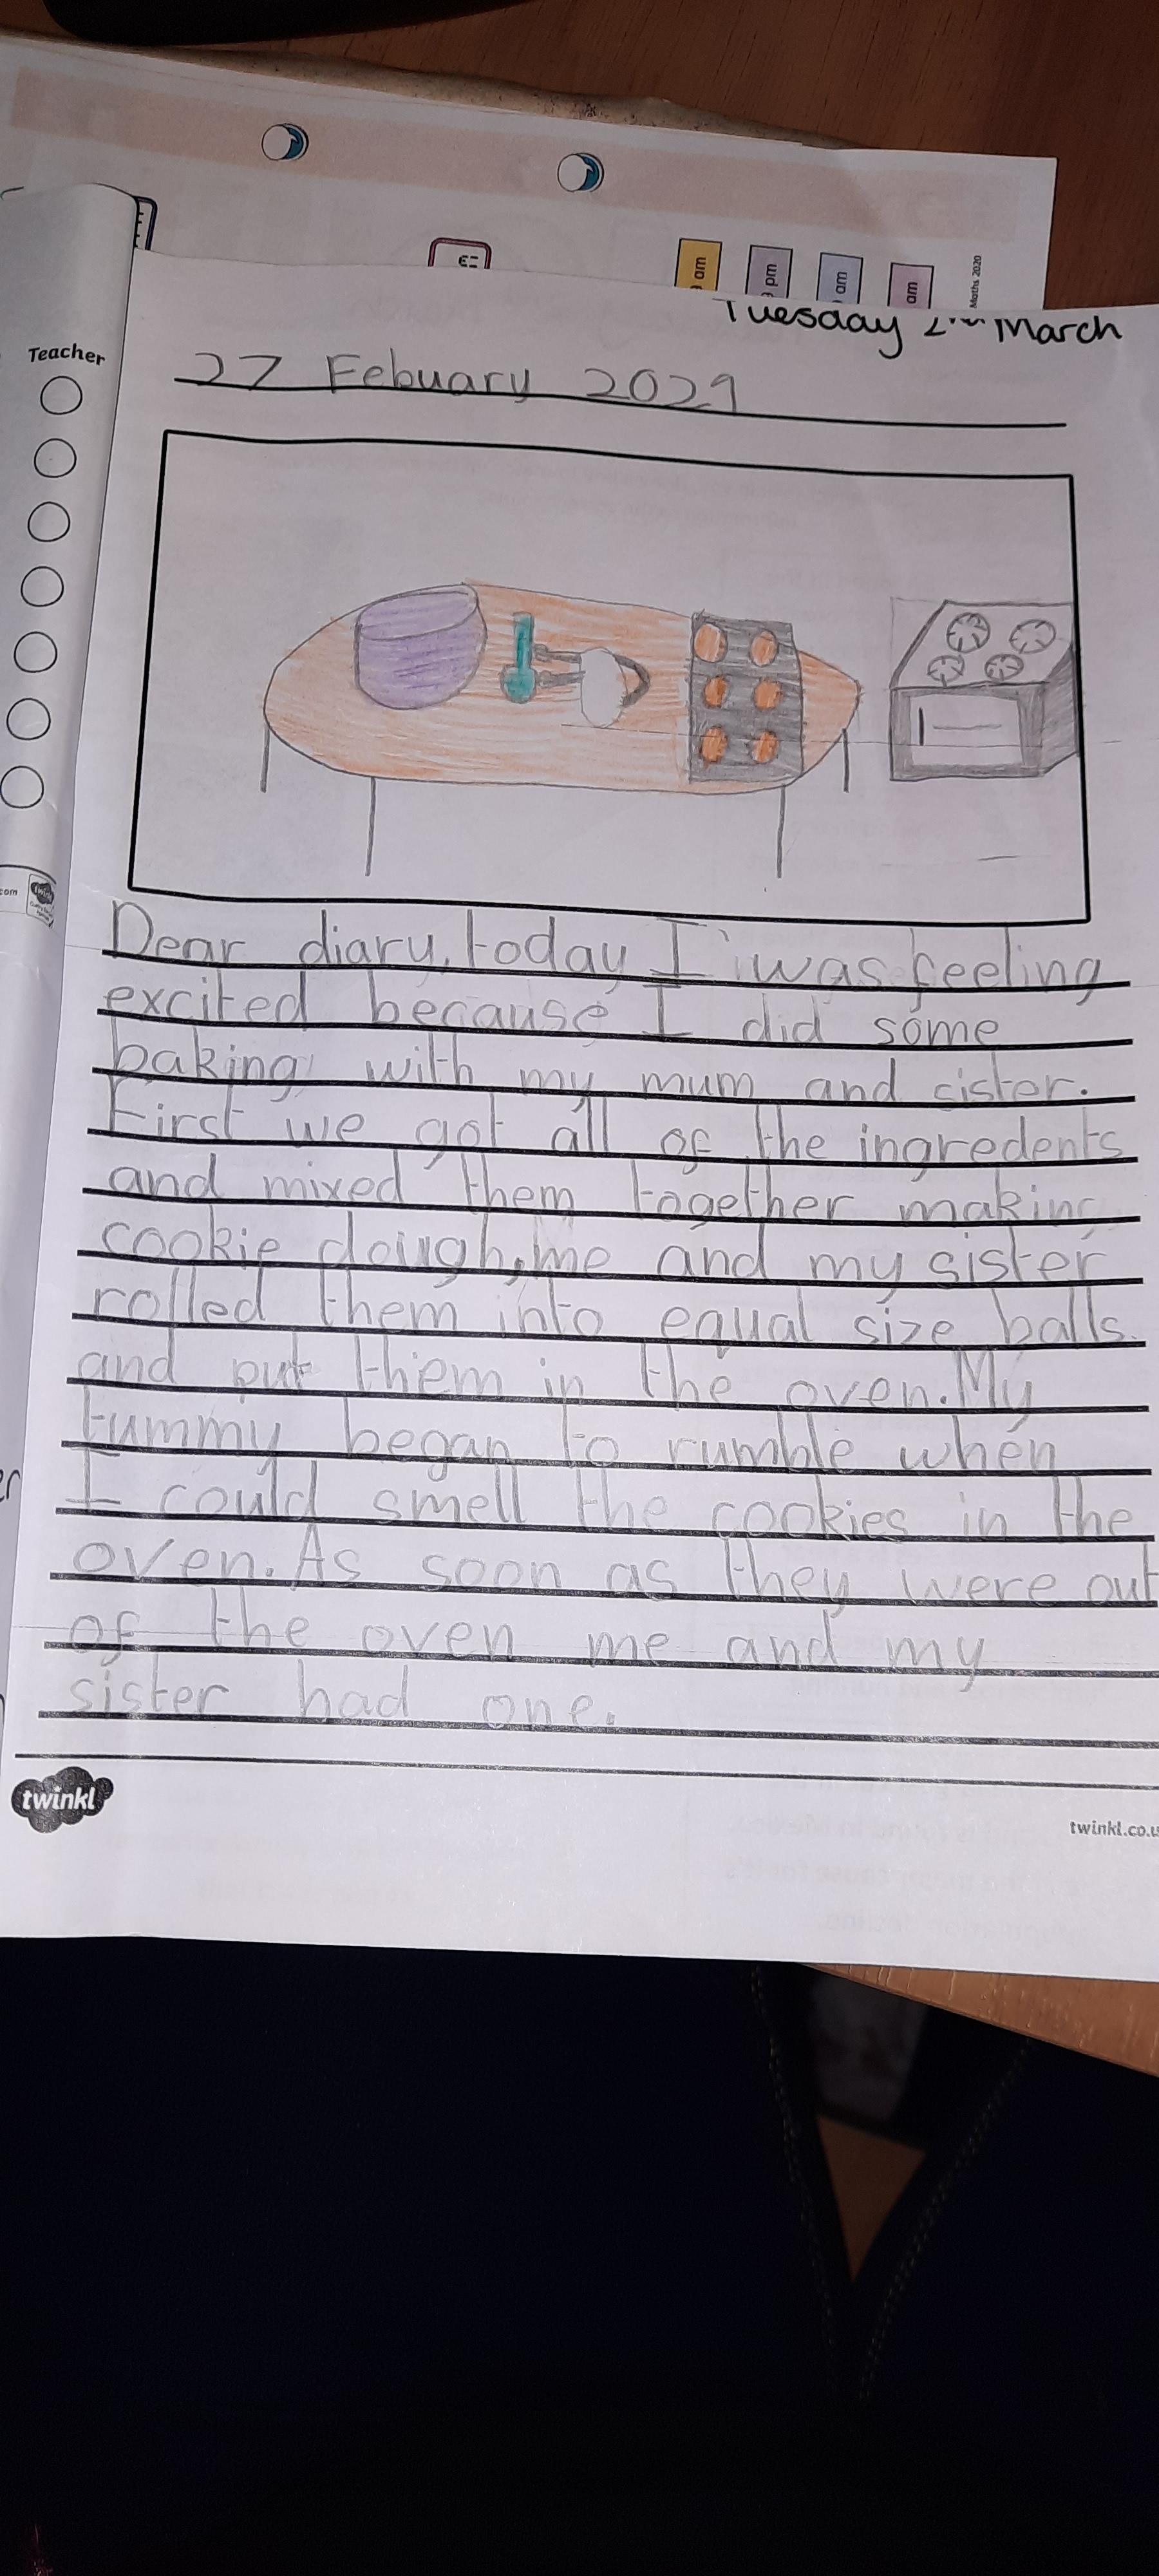 am
pm
am
am
Maths 2020
Tuesday 2nd March
Teacher
27 Febuary 2021
Dear diary, today I was feeling
excited because I did some
baking with my mum and sister.
First we got all of the ingredents
and mixed them together making
cookie dough, me and my sister
rolled them into equal size balls.
and put them in the oven. My
tummy began to rumble when
I could smell the cookies in the
oven. As soon as they were out
of the oven me and my
sister had one.
com
twinkl
er
twinkl
twinkl.co.u